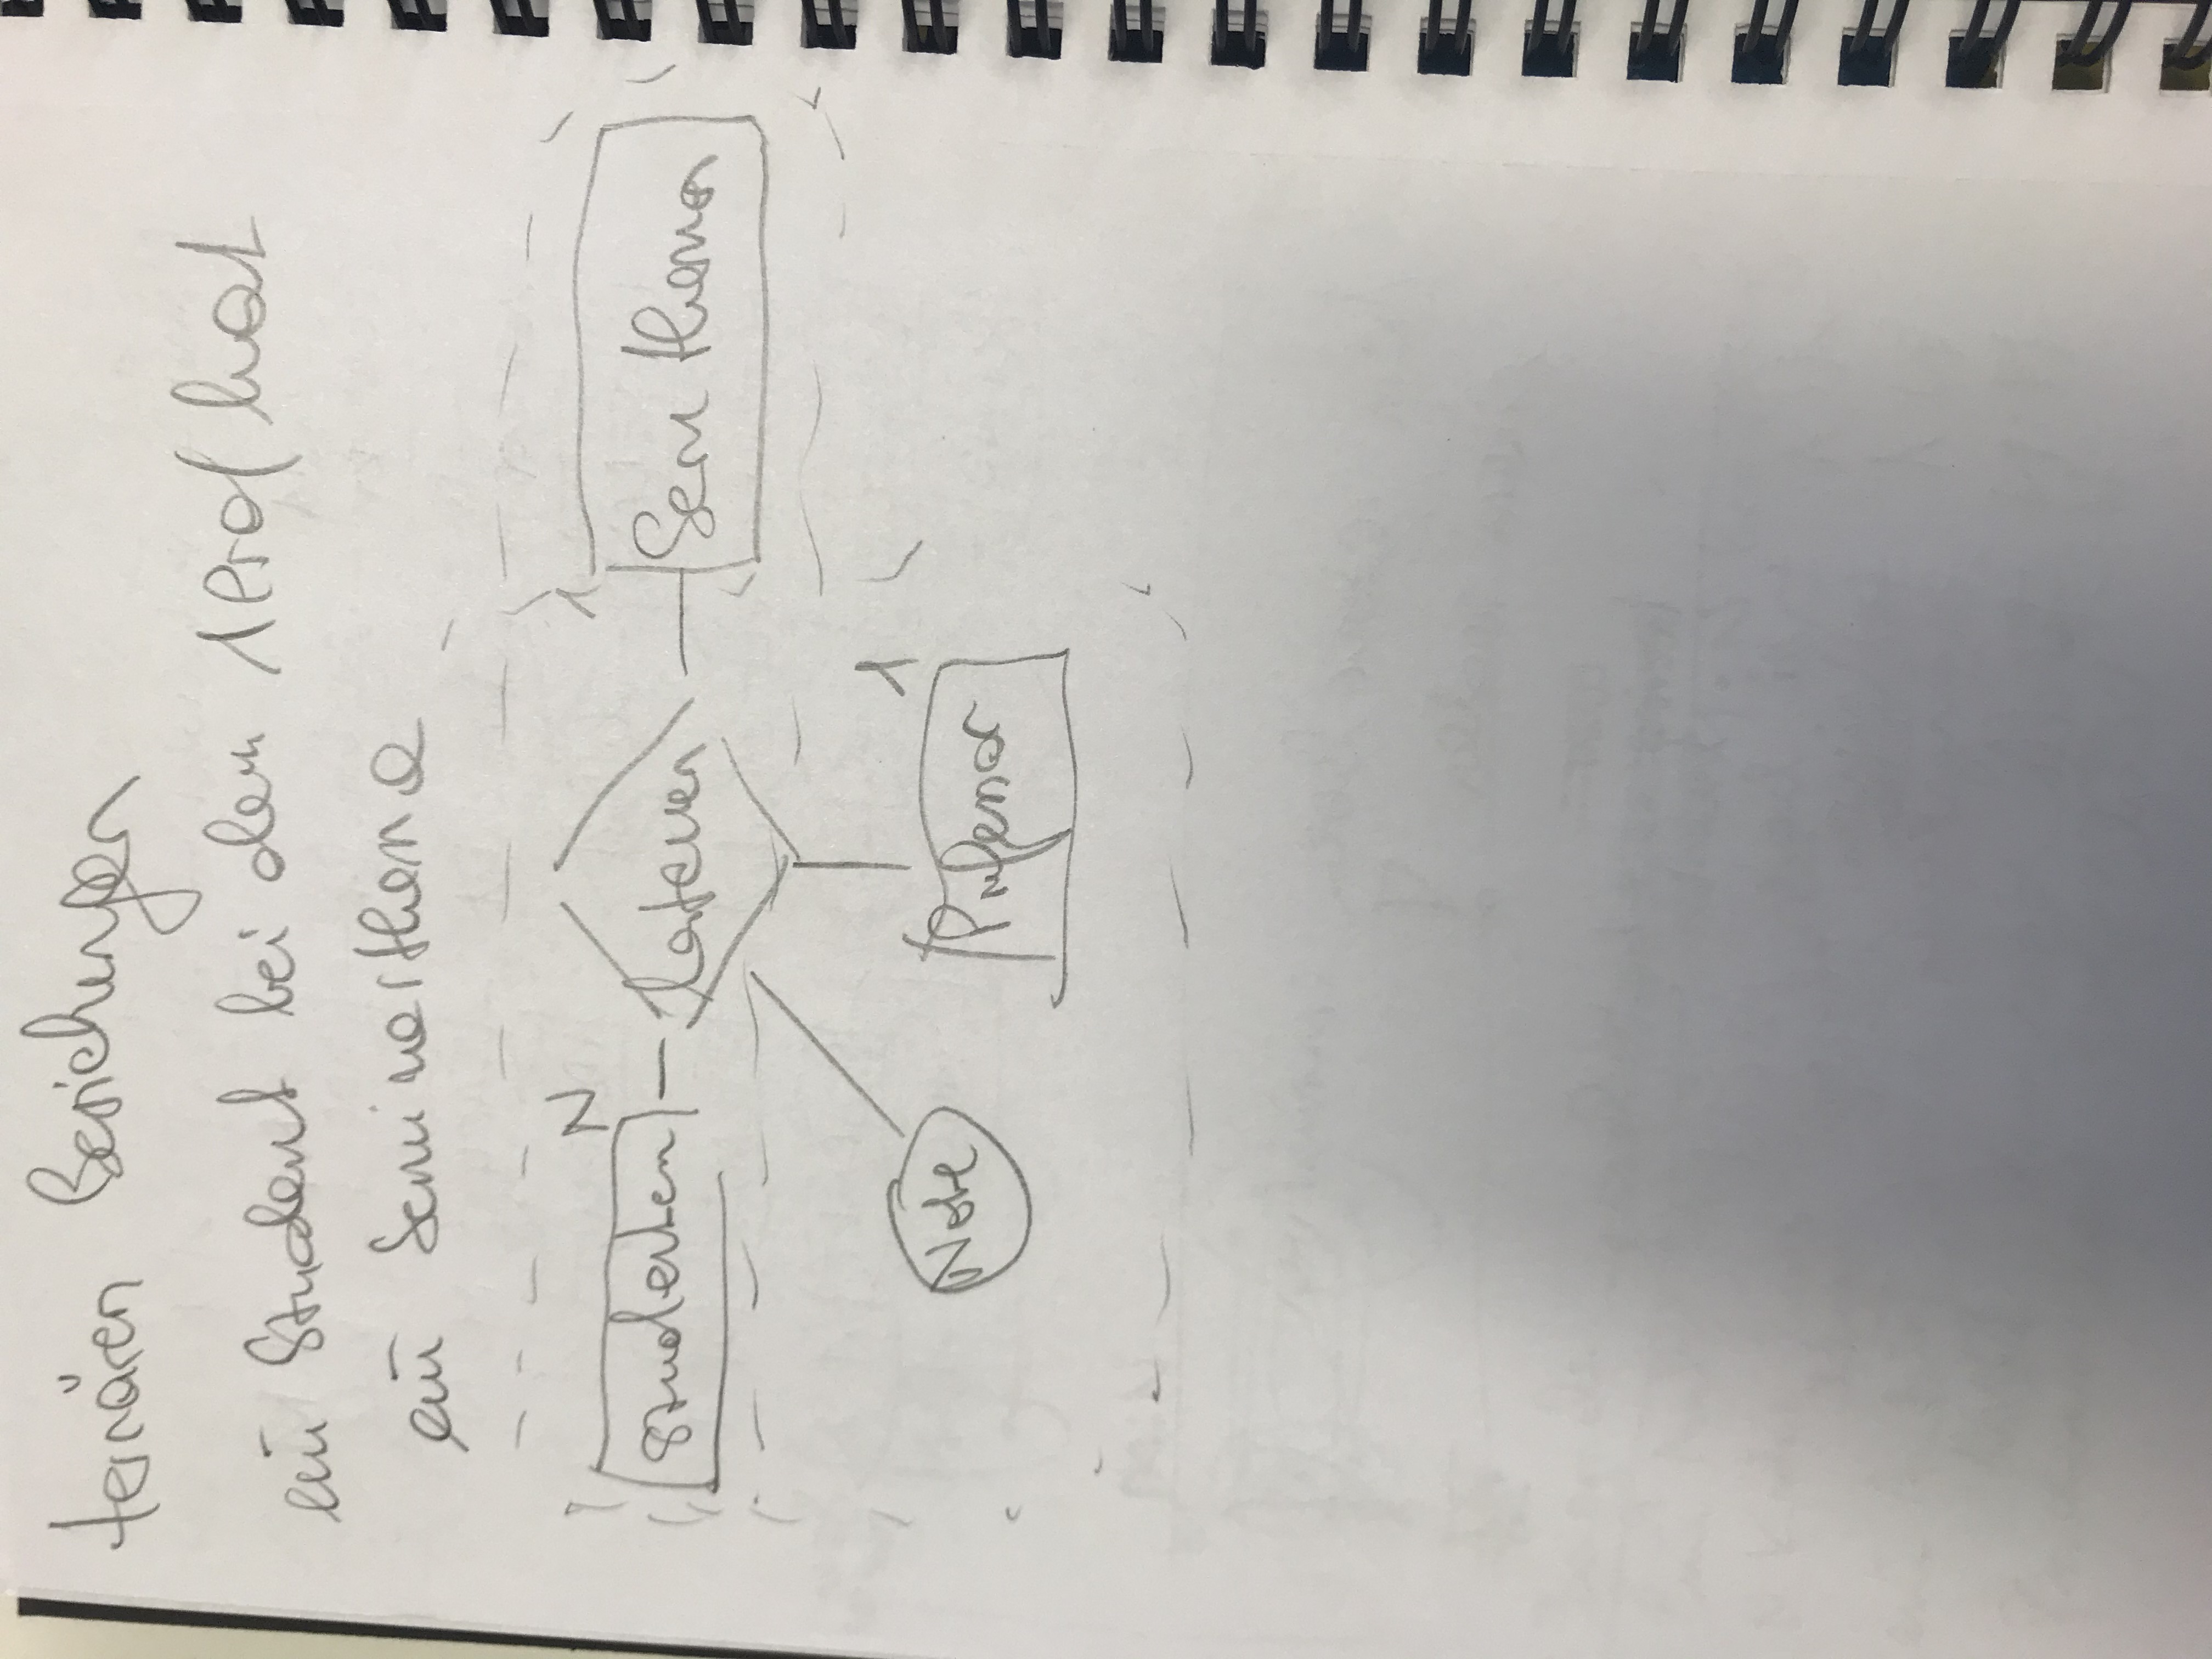 ternären Beziehungen
ein Student bei dem 1 Prof hat
ein Seminarthema
N
1
Studenten
Sem thema
1
Note
Professor